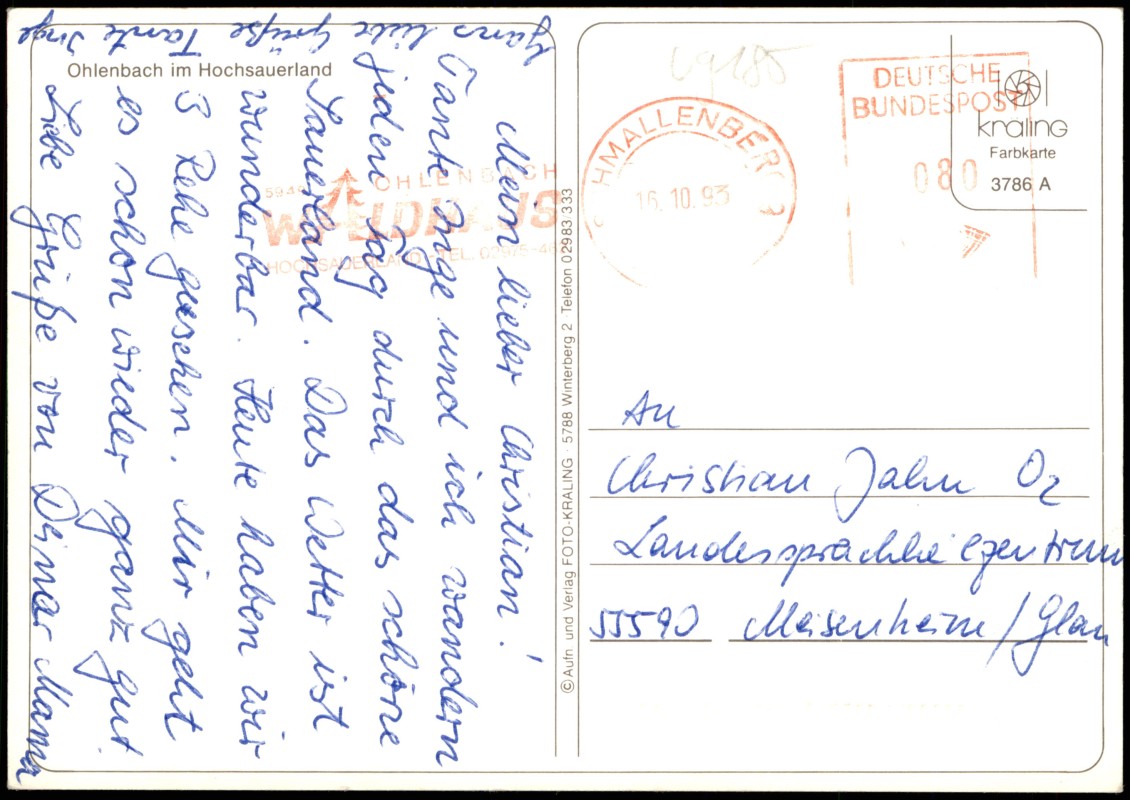 Ohlenbach im Hochsauerland
Mein lieber Christian!
Tante Inge und ich wandern
jeden Tag durch das schöne
Sauerland. Das Wetter ist
wunderbar. Heute haben wir
3 Rehe gesehen. Mir geht
es schon wieder ganz gut.
Liebe Grüße von Deiner Mama
Ganz liebe Grüße Tante Inge
OHLENBACH
WALDHAUS
HOCHSAUERLAND · TEL. 02975-
© Aufn. und Verlag FOTO-KRALING · 5788 Winterberg 2 · Telefon 02983 333
SCHMALLENBERG 3
16.10.93
DEUTSCHE
BUNDESPOST
080
kraling
Farbkarte
3786 A
An
Christian Jahn O2
Landessprachheilzentrum
55590 Meisenheim/Glan